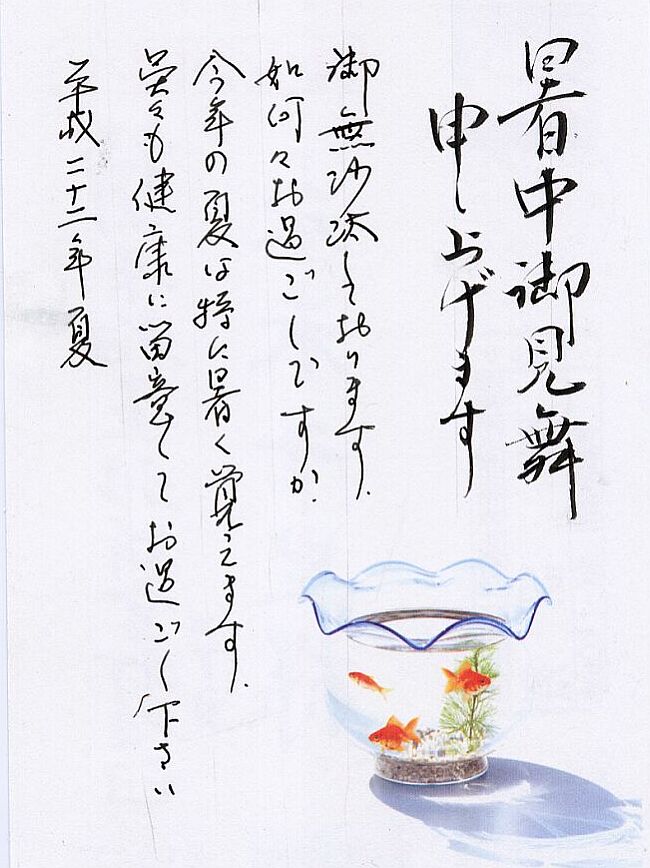 暑中御見舞
申し上げます
御無沙汰しております。
如何々お過ごしですか。
今年の夏は特に暑く覚えます。
呉々も健康に留意してお過ごし下さい
平成二十二年夏